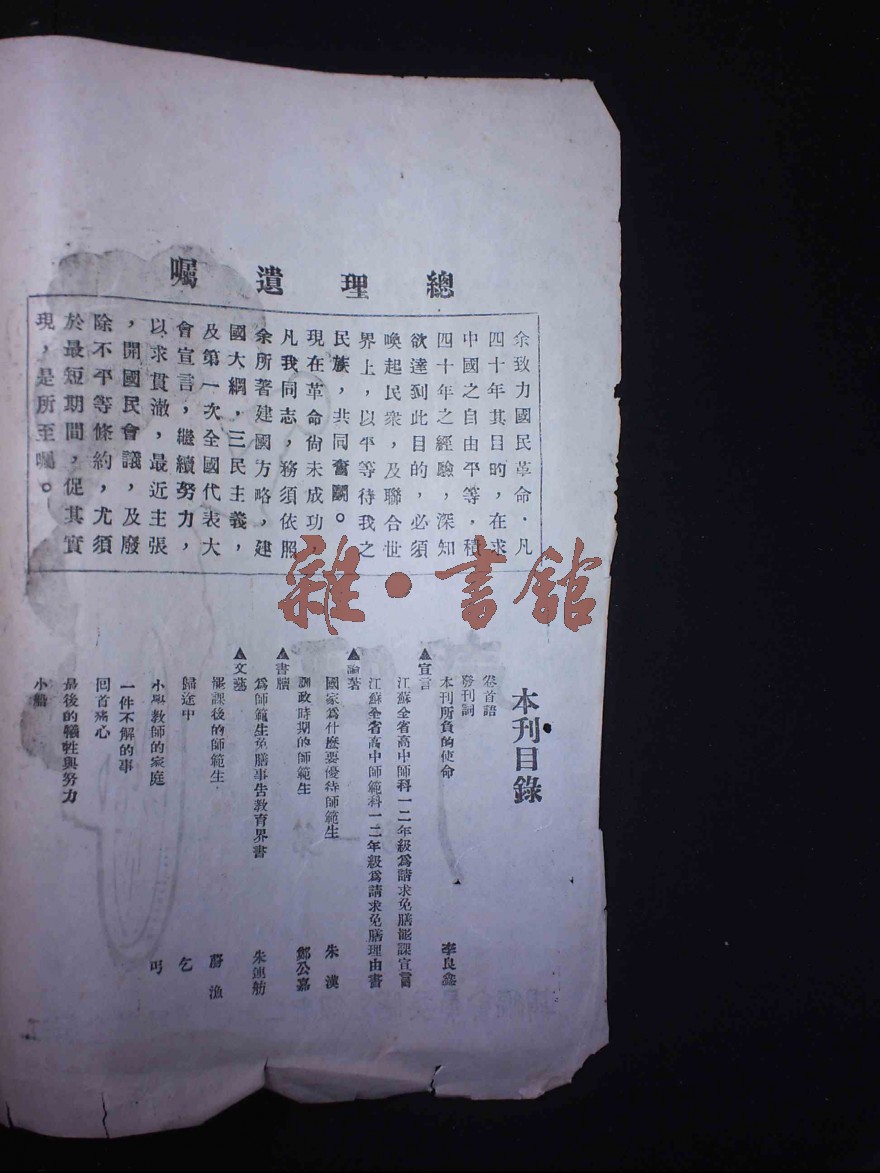 總理遺囑
余致力國民革命,凡
四十年其目的,在求
中國之自由平等,積
四十年之經驗,深知
欲達到此目的,必須
喚起民衆,及聯合世
界上,以平等待我之
民族,共同奮鬭。
現在革命尙未成功,
凡我同志,務須依照
余所著建國方略,建
國大綱,三民主義,
及第一次全國代表大
會宣言,繼續努力,
以求貫澈,最近主張
,開國民會議,及廢
除不平等條約,尤須
於最短期間,促其實
現,是所至囑。
本刊目錄
卷首語
發刊詞
本刊所負的使命 李良鑫
▲宣言
江蘇全省高中師科一二年級爲請求免膳罷課宣言
江蘇全省高中師範科一二年級爲請求免膳理由書
▲論著
國家爲什麼要優待師範生 朱漢
訓政時期的師範生 鄭公嘉
▲書牘
爲師範生免膳事告敎育界書 朱蓮舫
▲文藝
罷課後的師範生 漁
歸途中 乞
小學敎師的家庭 丐
一件不解的事
回首痛心
最後的犧牲與努力
小船
雜·書館